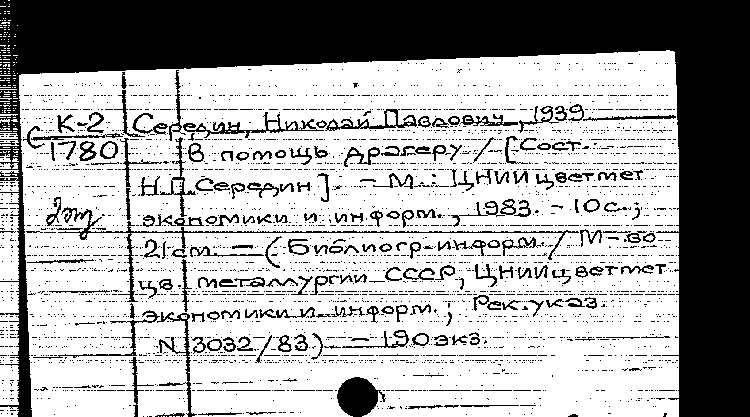 К-2 Середин, Николай Павлович, 1939
С 1780 В помощь драгеру / [Сост.
Н.П.Середин]. - М.: ЦНИИцветмет
экономики и информ., 1983. - 10с.;
21см. - (Библиогр. информ. / М-во
цв. металлургии СССР, ЦНИИцветмет
экономики и информ.; Рек. указ.
N 3032/83) - 190 экз.